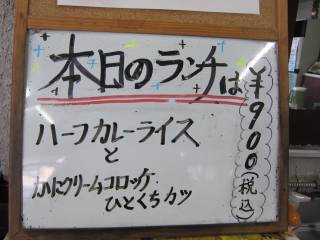 本日のランチは
ハーフカレーライス
と
かにクリームコロッケ
ひとくちカツ
¥900(税込)